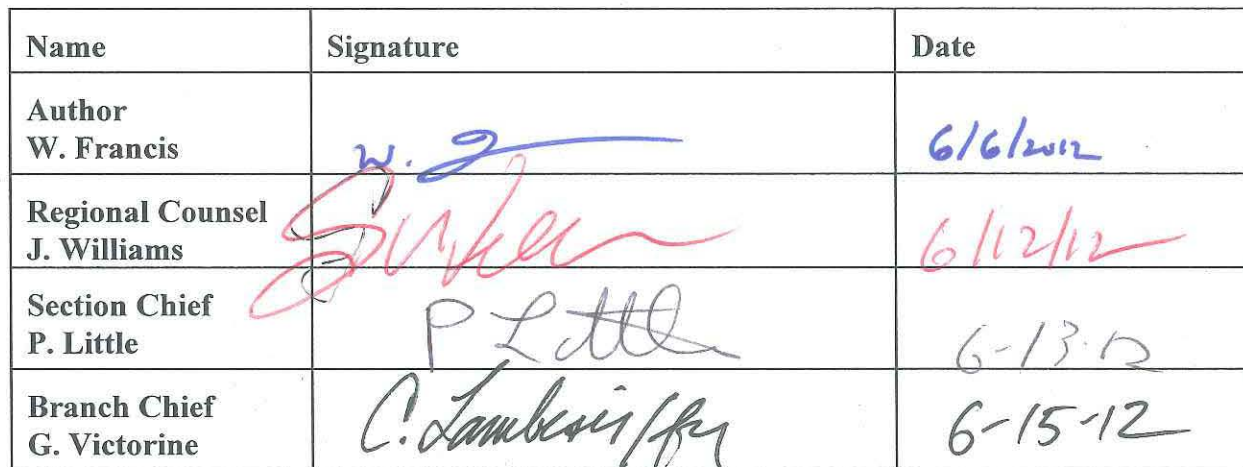 Name Signature Date
Author
W. Francis W. 6/6/2012
Regional Counsel
J. Williams 6/12/12
Section Chief
P. Little P Little 6-13-12
Branch Chief
G. Victorine C. Lambesis/for 6-15-12